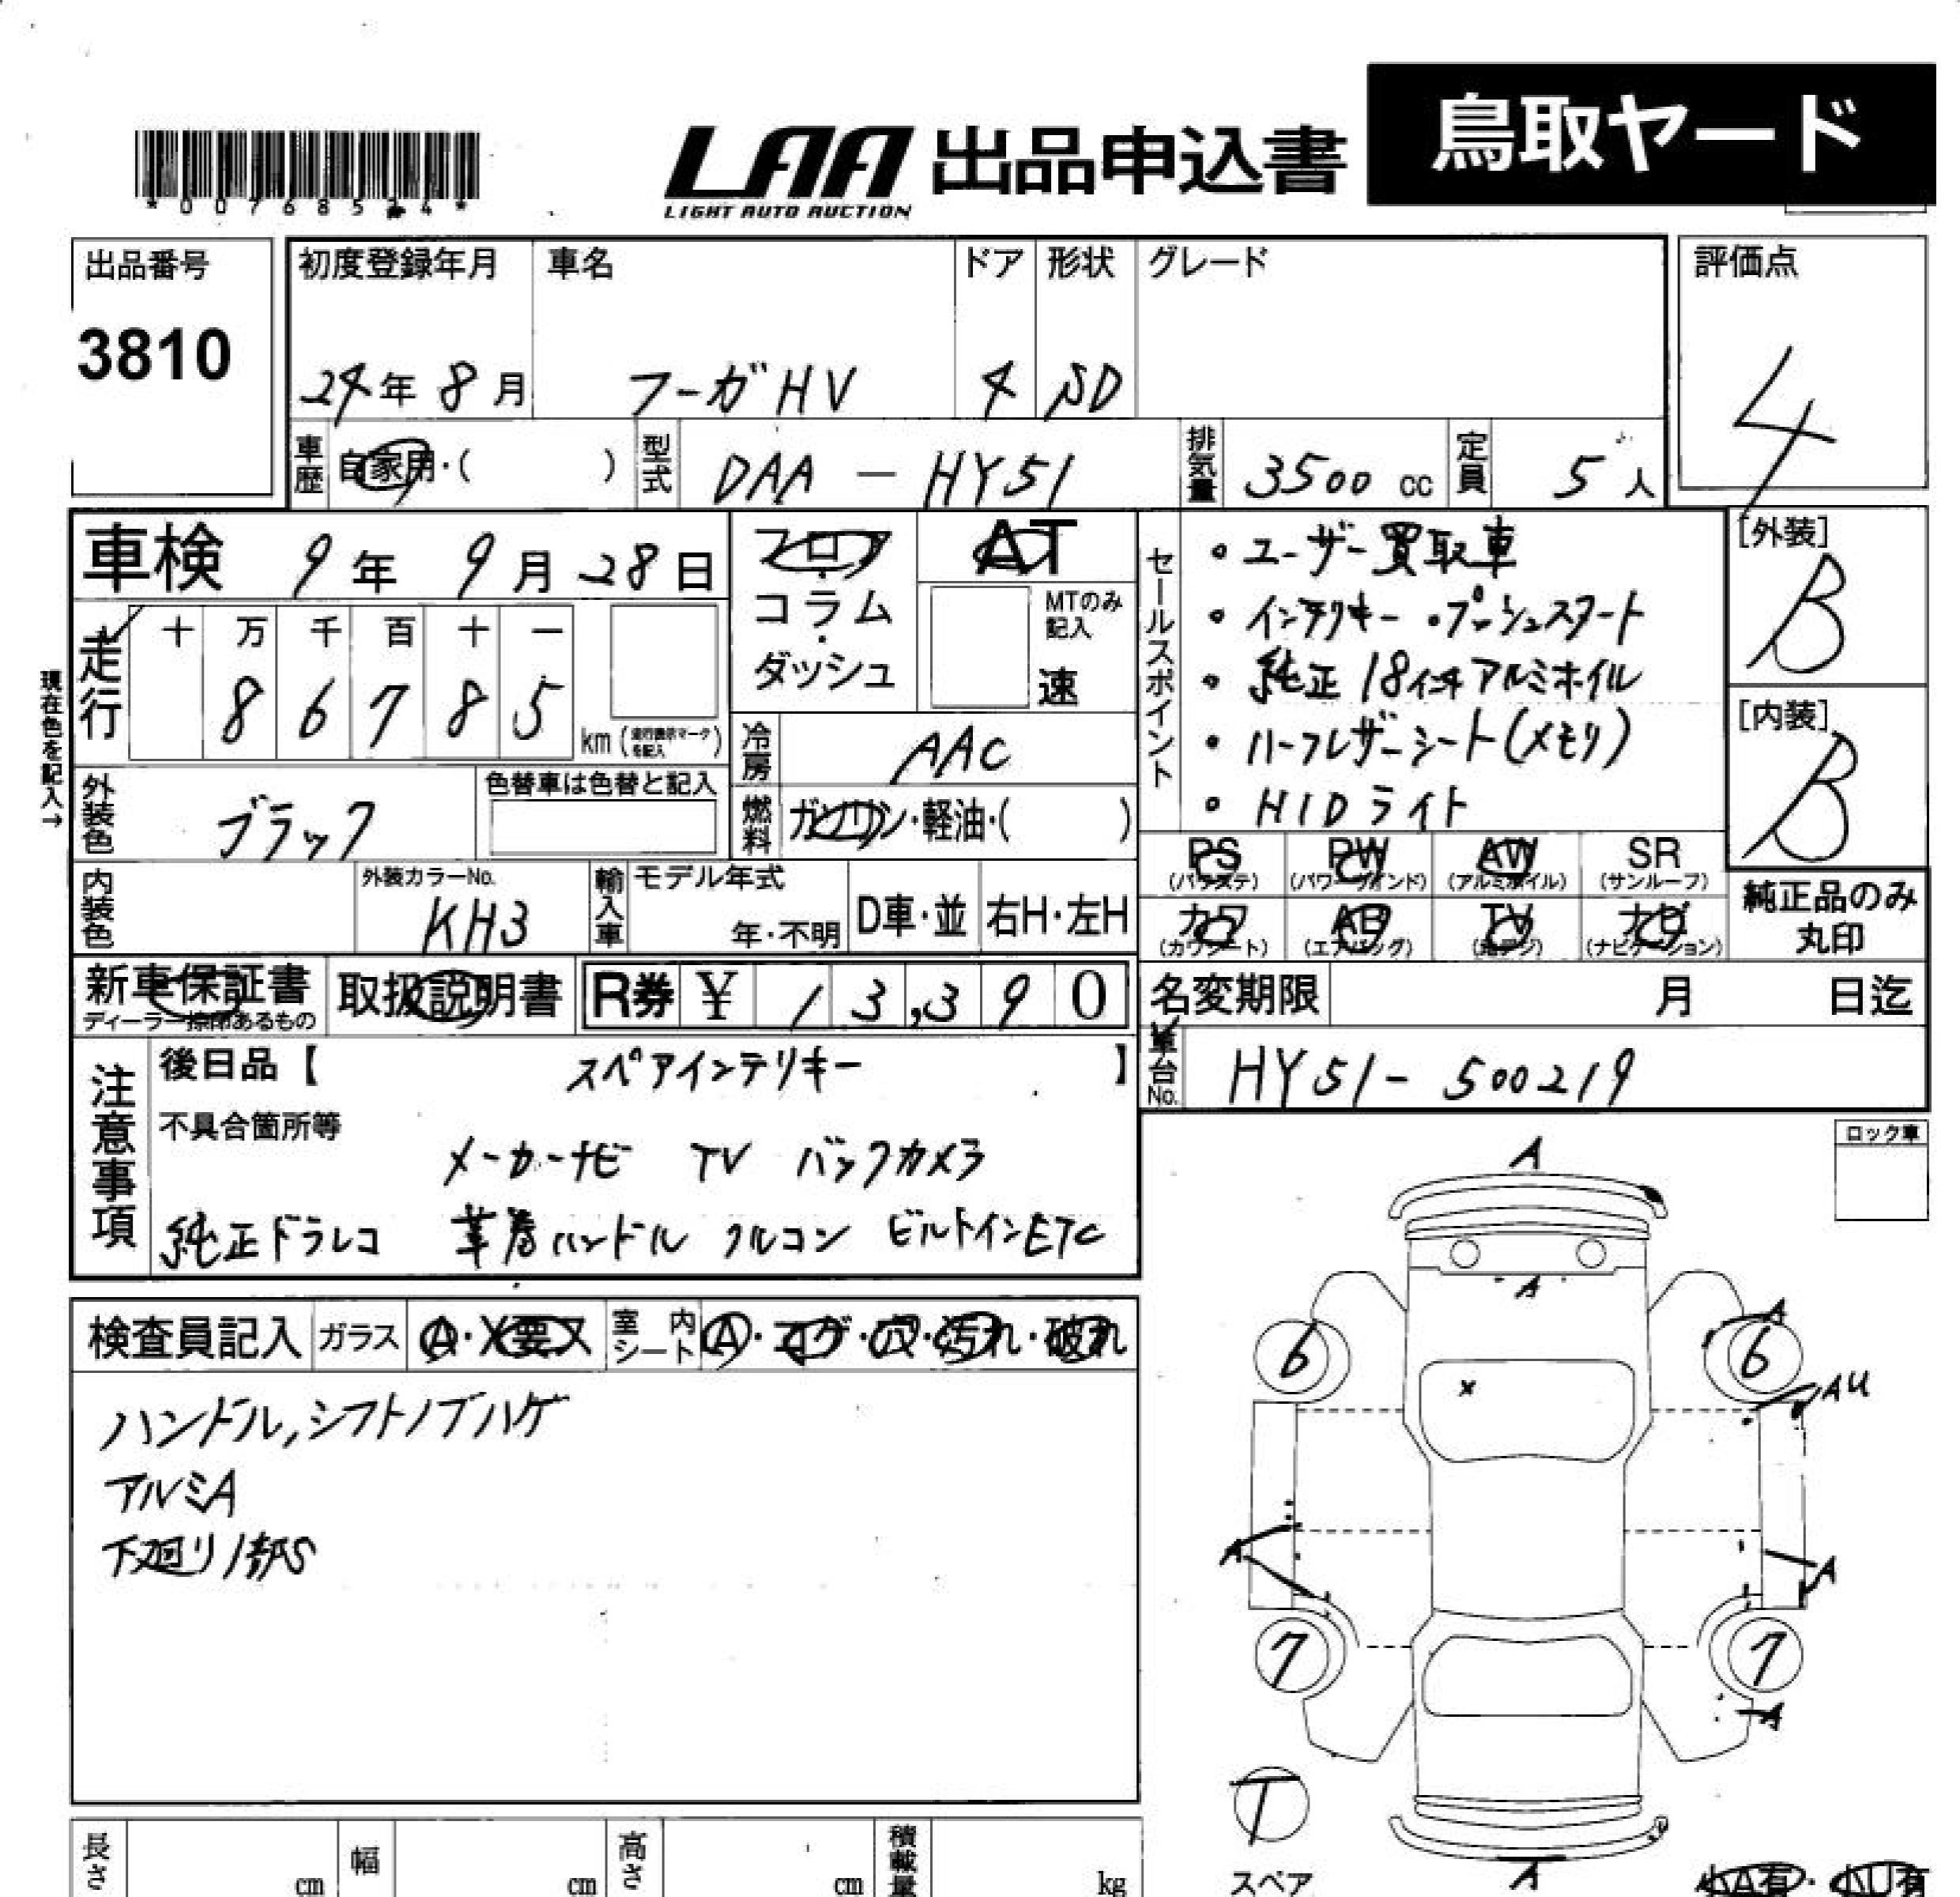 鳥取ヤード
LAA 出品申込書
LIGHT AUTO AUCTION
出品番号 初度登録年月 車名 ドア 形状 グレード 評価点
3810 24年 8月 フーガHV 4 SD 4
車歴 自家用・( ) 型式 DAA - HY51 排気量 3500 cc 定員 5 人
車検 9年 9月 28日 フロア AT
コラム MTのみ記入
ダッシュ 速
走行 十 万 千 百 十 一
8 6 7 8 5 km (走行表示マークを記入)
現在色を記入→
冷房 AAC
外装色 ブラック 色替車は色替と記入 燃料 ガソリン・軽油・( )
内装色 外装カラーNo. KH3 輸入車 モデル年式 年・不明 D車・並 右H・左H
セールスポイント
・ユーザー買取車
・インテリキー ・プッシュスタート
・純正18インチアルミホイル
・ハーフレザーシート(メモリ)
・HIDライト
[外装] B
[内装] B
PS (パワステ) PW (パワーウインド) AW (アルミホイル) SR (サンルーフ)
カワ (カワシート) AB (エアバッグ) TV (地デジ) ナビ (ナビゲーション)
純正品のみ丸印
新車保証書 ディーラー捺印あるもの 取扱説明書 R券 ¥ 1 3,3 9 0 名変期限 月 日迄
車台No. HY51- 500219
注意事項 後日品【 スペアインテリキー 】
不具合箇所等
メーカーナビ TV バックカメラ
純正ドラレコ 革巻ハンドル クルコン ビルトインETC
ロック車
検査員記入 ガラス A・X要ス 室内シート A・コゲ・穴・汚れ・破れ
ハンドル,シフトノブハゲ
アルミA
下廻り1部S
A
A
A
6 6
x
AU
A A
7 7
A
T
スペア
A
小A有・小U有
長さ cm 幅 cm 高さ cm 積載量 kg